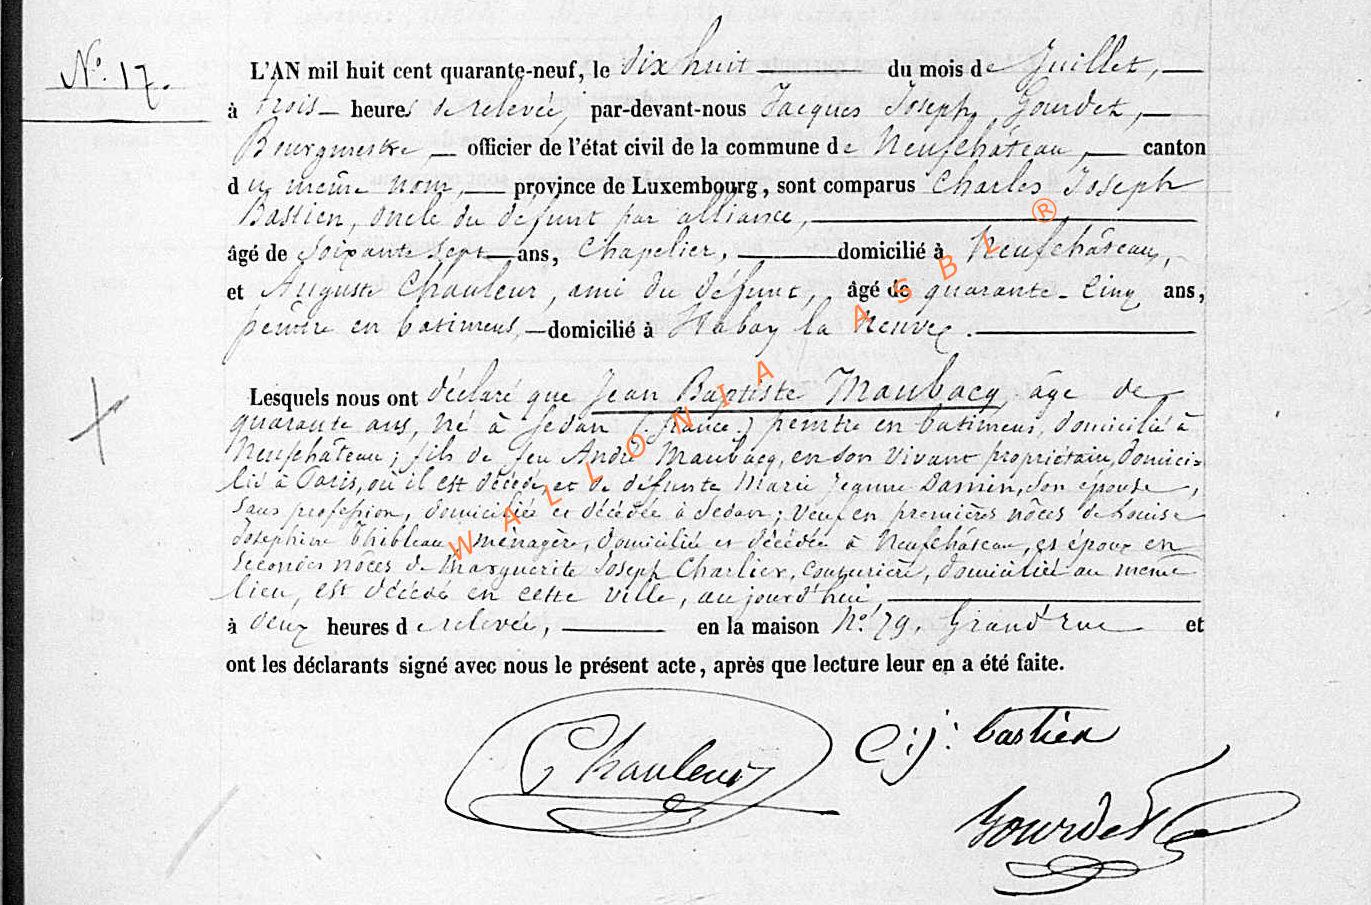 N.° 17.
L'AN mil huit cent quarante-neuf, le dix huit du mois de Juillet,
à trois heures de relevée, par-devant-nous Jacques Joseph Gourdet,
Bourgmestre officier de l'état civil de la commune de Neufchâteau, canton
du même nom, province de Luxembourg, sont comparus Charles Joseph
Bastien, oncle du défunt par alliance,
âgé de soixante sept ans, Chapelier, domicilié à Neufchâteau,
et Auguste Chauleur, ami du défunt, âgé de quarante-cinq ans,
peintre en batimens, domicilié à Habay la Neuve.
Lesquels nous ont déclaré que Jean Baptiste Maubacq âgé de
quarante ans, né à Sedan (france) peintre en batimens, domicilié à
Neufchâteau; fils de feu André Maubacq, en son vivant propriétaire, domici-
lié à Paris, où il est décédé, et de défunte Marie Jeanne Damien, son épouse,
sans profession, domiciliée et décédée à Sedan; veuf en premières nôces de Louise
Josephine Thibleau ménagère, domiciliée et décédée à Neufchâteau, et époux en
secondes nôces de Marguerite Joseph Charlier, couturière, domiciliée au même
lieu, est décédé en cette ville, aujourd'hui,
à deux heures de relevée, en la maison N.° 79, Grand'rue et
ont les déclarants signé avec nous le présent acte, après que lecture leur en a été faite.
Chauleur
C: j: bastien
Gourdet
WALLONIA ASBL ®